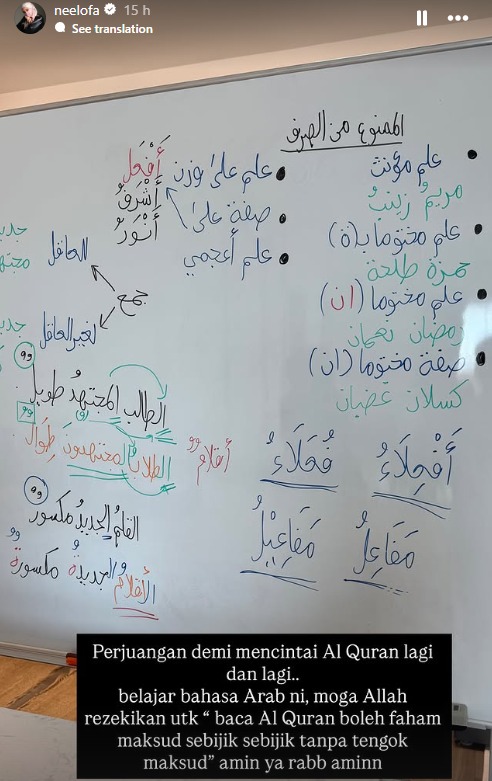 neelofa 15 h
See translation
الممنوع من الصرف
• علم مؤنث
مريمُ زينبُ
• علم مختوما بـ(ة)
حمزة طلحة
• علم مختوما (ان)
رمضان نعمان
• صفة مختوما (ان)
كسلان غضبان
• علم على وزن أَفْعَل
أَشْرَفُ
• صفة على
أَنْوَرُ
• علم أعجمي
جمع
للعاقل
لغير العاقل
أَفْعِلَاءُ
فُعَلَاءُ
مَفَاعِلُ
مَفَاعِيْلُ
الطالب المجتهدُ طويل
الطلابُ المجتهدونَ طِوَال
أقلام
القلمُ الجديدُ مكسور
الأقلامُ الجديدةُ مكسورة
Perjuangan demi mencintai Al Quran lagi
dan lagi..
belajar bahasa Arab ni, moga Allah
rezekikan utk “ baca Al Quran boleh faham
maksud sebijik sebijik tanpa tengok
maksud” amin ya rabb aminn